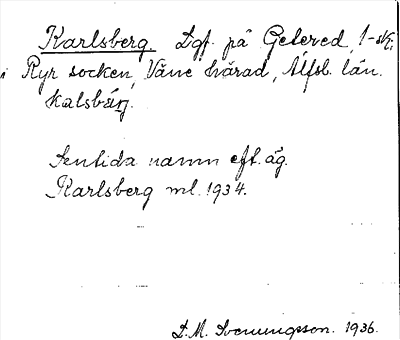 Karlsberg. Lgf. på Gelered, 1-sk,
i Ryr socken, Väne härad, Älfsb. län.
kalsbärj.
Sentida namn eft. äg.
Karlsberg ml. 1934.
D.M. Svenungsson. 1936.